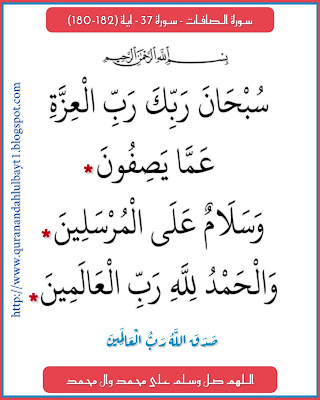 سورة الصافات - سورة 37 - اية (182-180)
بِسْمِ اللَّهِ الرَّحْمَٰنِ الرَّحِيمِ
سُبْحَانَ رَبِّكَ رَبِّ الْعِزَّةِ
عَمَّا يَصِفُونَ *
وَسَلَامٌ عَلَى الْمُرْسَلِينَ *
وَالْحَمْدُ لِلَّهِ رَبِّ الْعَالَمِينَ *
صَدَقَ اللَّهُ رَبُّ الْعَالَمِينَ
اللهم صل وسلم على محمد وال محمد
http://www.quranandahlulbayt1.blogspot.com